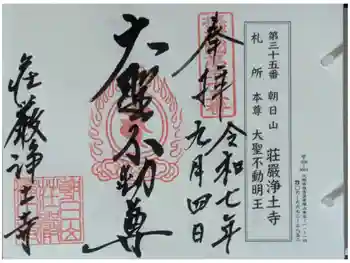 第三十五番 朝日山 荘厳浄土寺
札所 本尊 大聖不動明王
奉拝
令和七年
元月四日
大聖不動尊
荘厳浄土寺